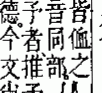 皆之
音同部
子者推
德今文